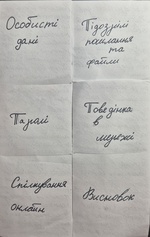 Особисті
дані
Підозрілі
посилання
та
файли
Паролі
Поведінка
в
мережі
Спілкування
онлайн
Висновок